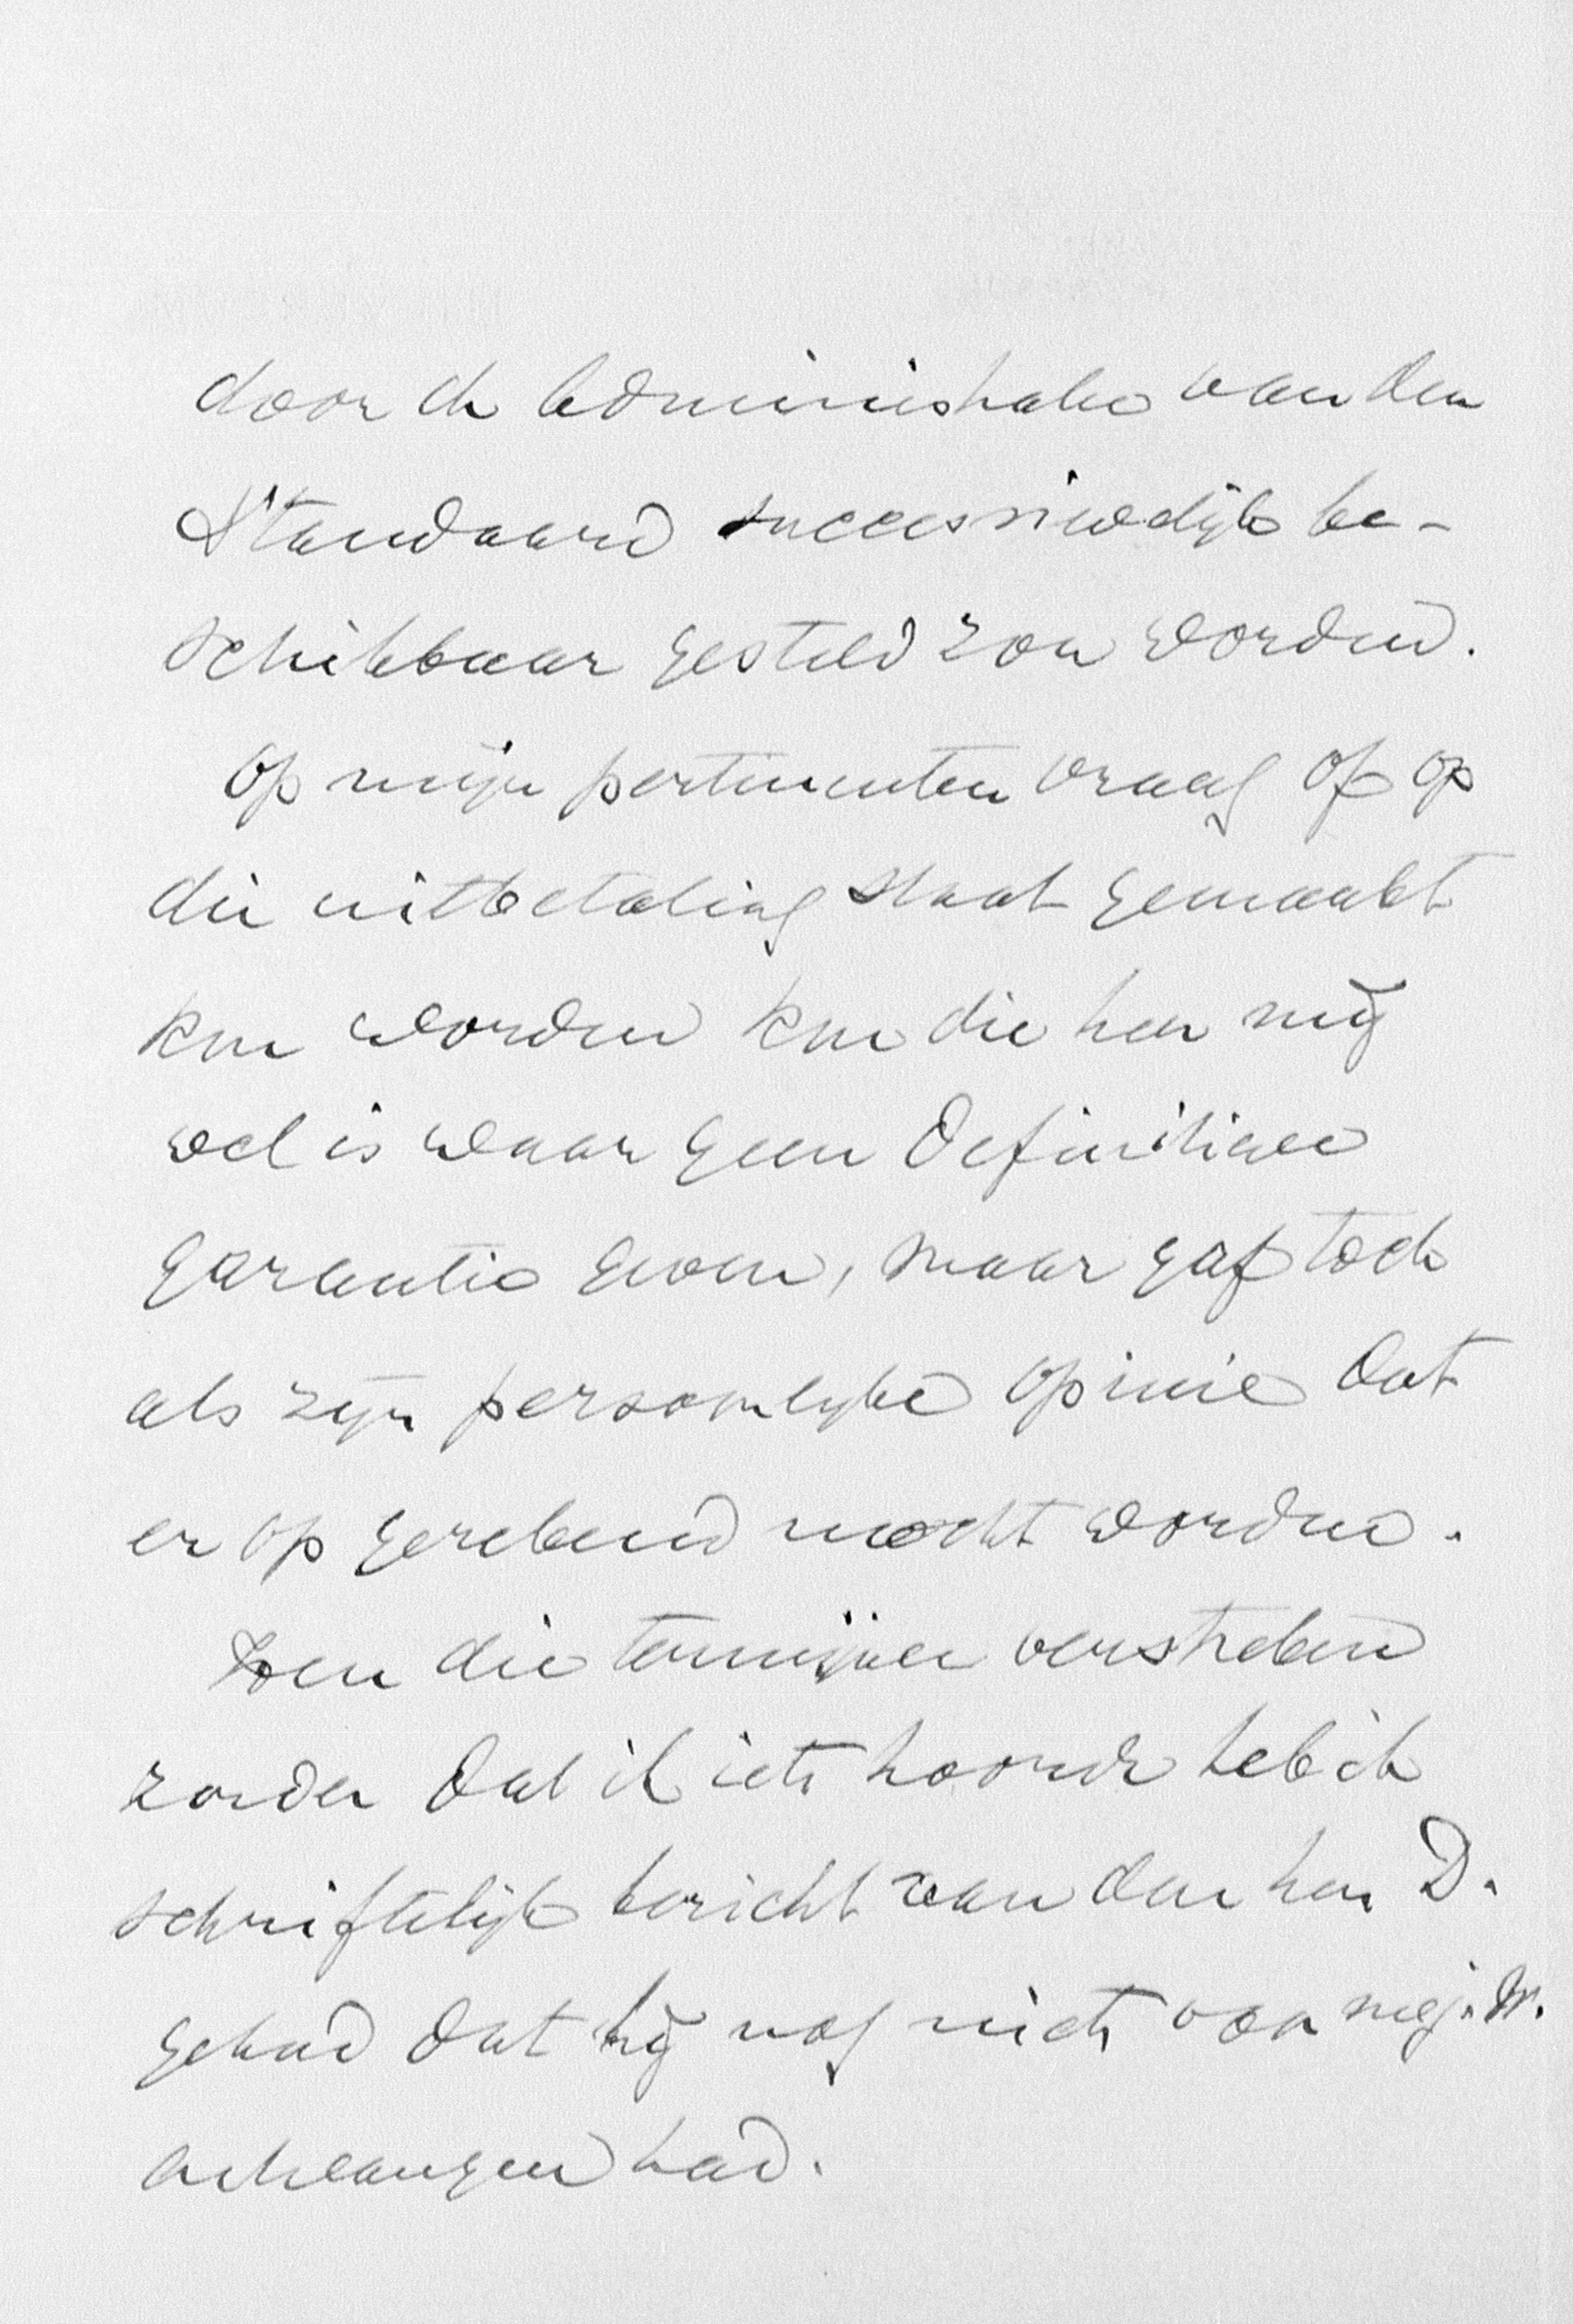 door de administratie van den
Standaard successievelijk be-
schikbaar gesteld zou worden.
Op mijn pertinenten vraag of op
die uitbetaling staat gemaakt
kon worden kon die heer mij
wel is waar geen definitieve
garantie geven, maar gaf toch
als zijn persoonlijke opinie dat
er op gerekend mocht worden.
Toen die termijnen verstreken
zonder dat ik iets hoorde heb ik
schriftelijk bericht van den heer D.
gehad dat hij nog niets voor mej. W.
ontvangen had.